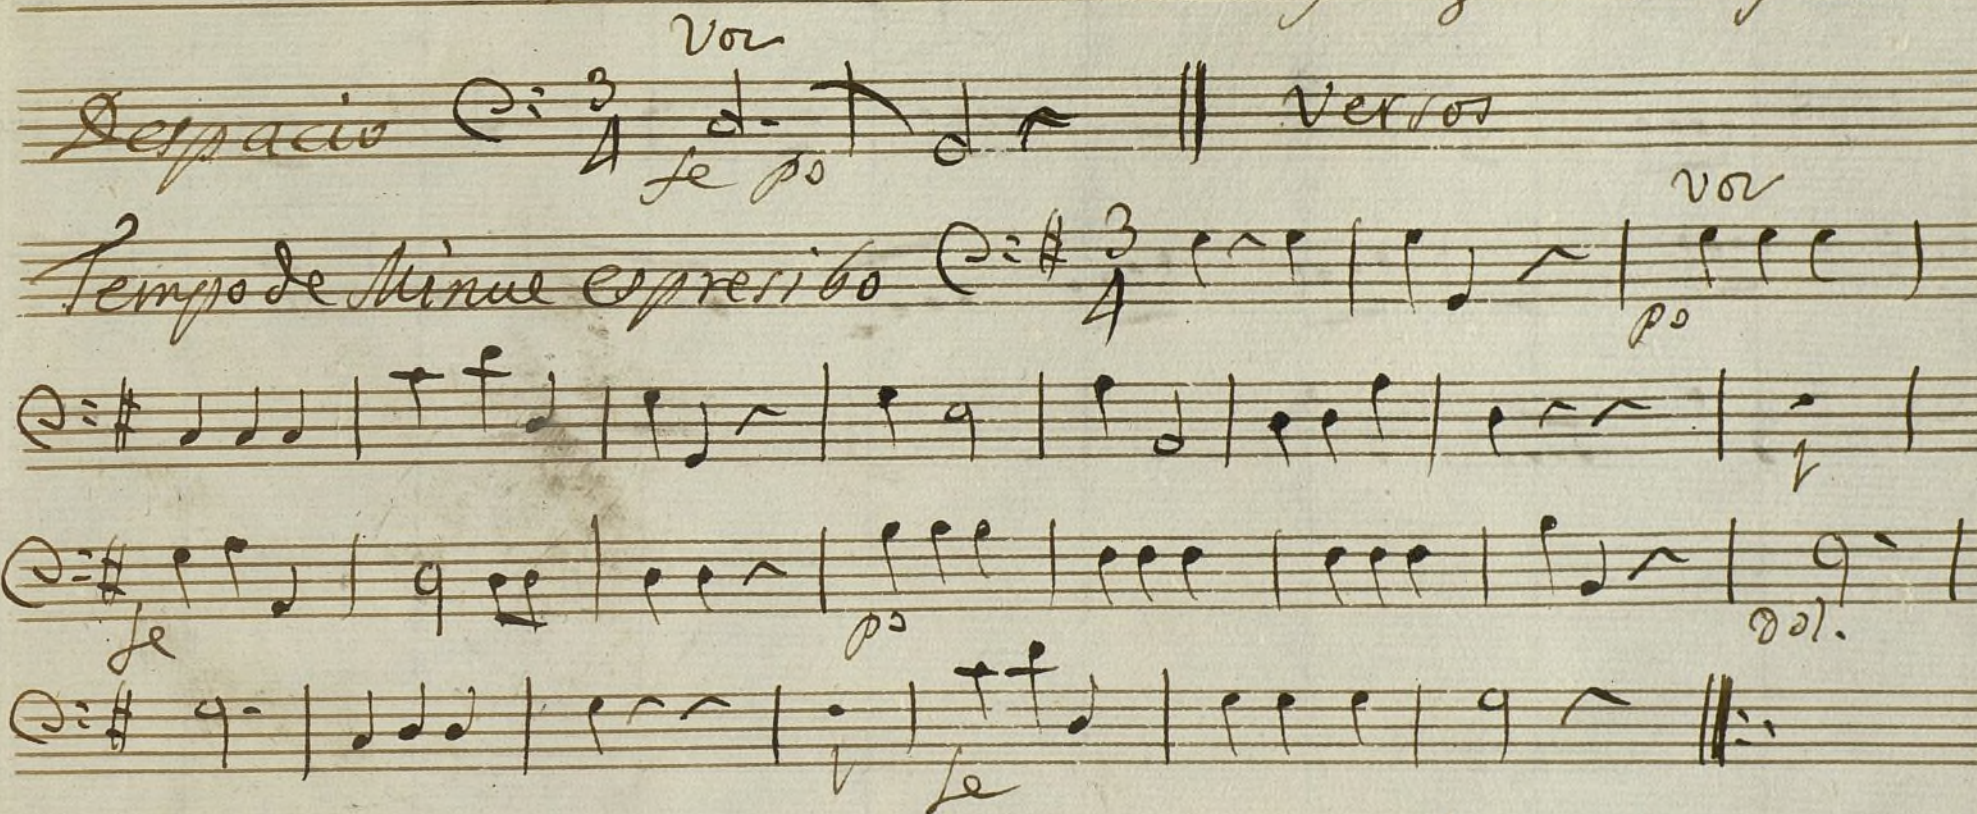 Voz
Despacio 3/4 Versos
fe po
voz
Tempo de Minue espresibo 3/4
po
fe
po
Dol.
fe